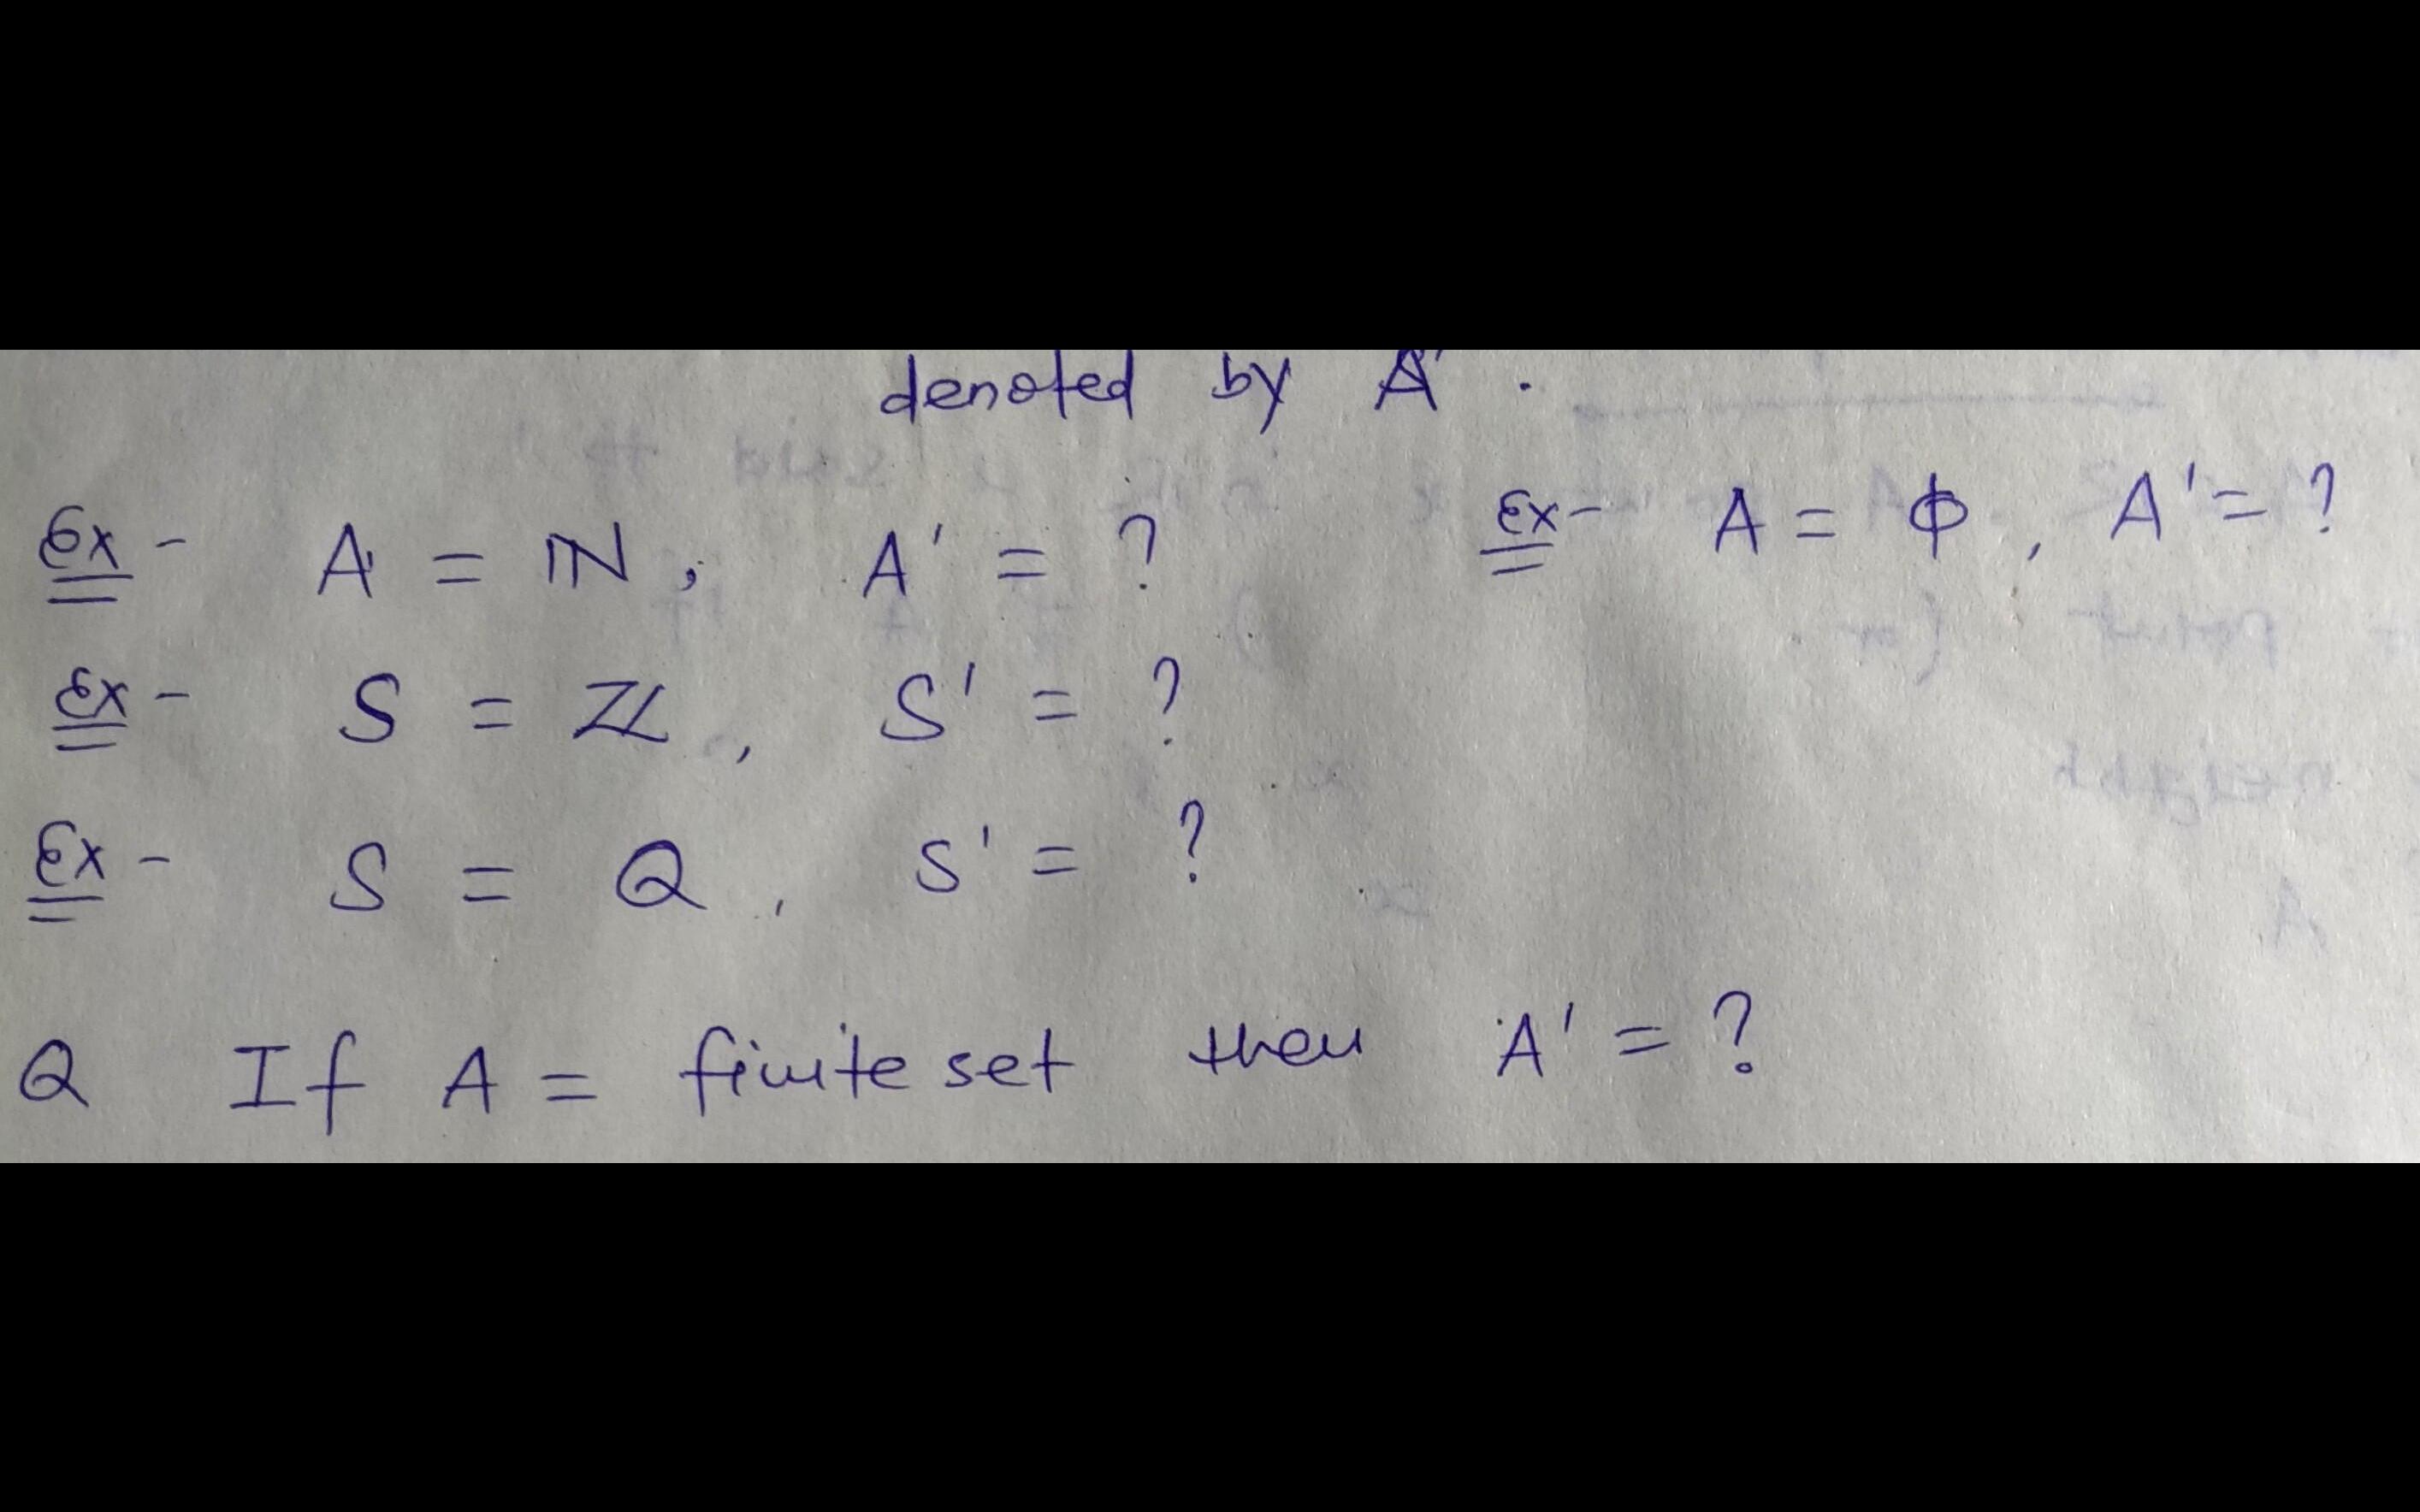 denoted by A' .
Ex - A = ℕ, A' = ? Ex - A = ϕ, A' = ?
Ex - S = ℤ, S' = ?
Ex - S = Q, S' = ?
Q If A = finite set then A' = ?